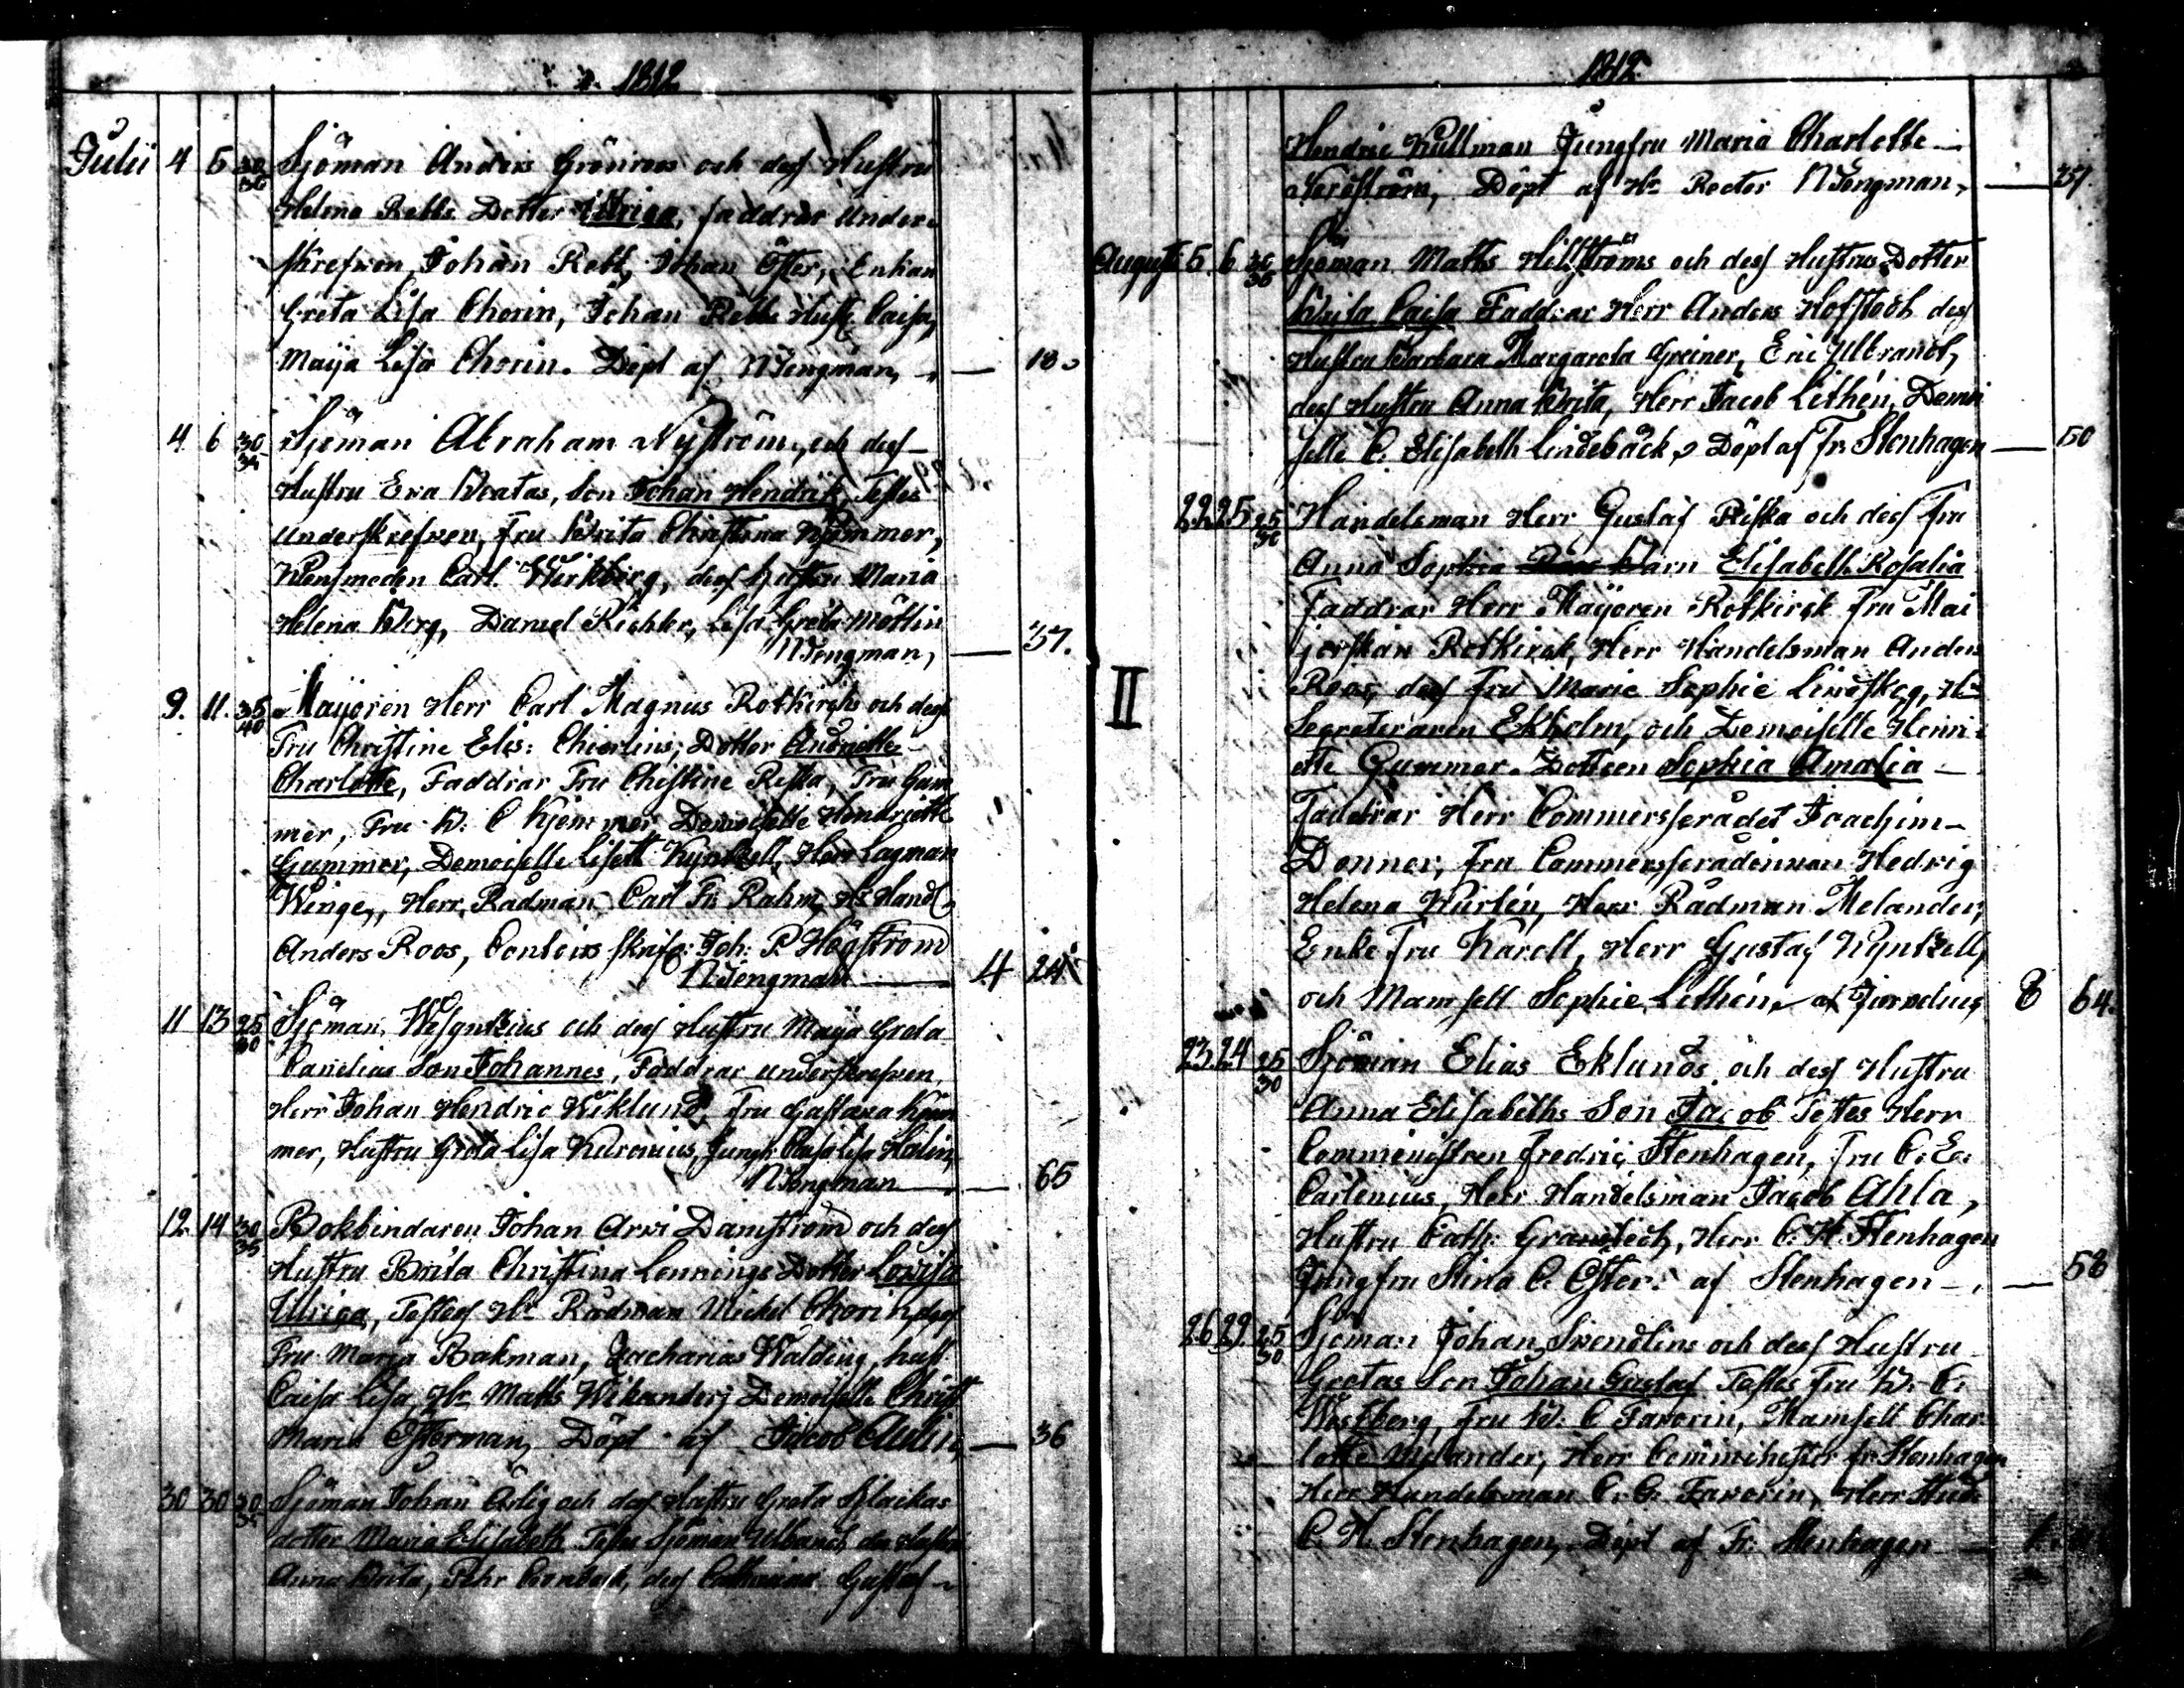 1812
Julii 4 5 30/36 Sjöman Anders Grönroos och dess Hustru
Helena Rebbs Dotter Ulrica, faddrar under-
skrefven, Johan Rebb, Johan Öster, Enkan
Greta Lisa Chorin, Johan Rebbs Hust. Caisa,
Maija Lisa Chorin. Döpt af NTengman, — 18.
4. 6 30/34 Sjöman Abraham Nyström, och dess
Hustru Eva Beatas, Son Johan Hendrik, Testes
underskrefven, Fru Brita Christina Kjemmer,
Carl Wirkberg, dess hustru Maria
Helena Berg, Daniel Richter, Lisa Greta Mötlin
NTengman, — 37.
9. 11. 35/40 Mayoren Herr Carl Magnus Rotkirchs och dess
Fru Christine Elis: Dotter
Charlotte, Faddrar Fru Christine Riska, Fru Gum
mer, Fru B. C Kjemmer Demoiselle Hendriette
Gummer, Demoiselle Lisett Kyntzell, Herr Lagman
Winge, Herr Rådman Carl Fr. Rahm, Hr Handl.
Anders Roos, Contoirs skrif: Joh: P Högström
NTengman — 4 24
11 13 25/30 Sjöman och dess Hustru Maija Greta
Son Johannes, Faddrar underskrefven,
Herr Johan Hendric Wiklund, Fru Gustava Kjem
mer, Hustru Greta Lisa Jungfr. Caisa Lisa Holin,
NTengman — 65
12 14 30/35 Bokbindaren Johan Arvi Damström och dess
Hustru Brita Christina Lennings Dotter Lovisa
Ulrica, Testes Hr Rådman Michel Chorin dess
Fru Maria Bakman, Zacharias Walding, hust
Caisa Lisa, Hr Matts Wikander, Demoiselle Christ
Maria Österman, Döpt af Jacob — 36
30 30 30/35 Sjöman Johan Ärlig och dess Hustru Greta
dotter Maria Elisabeth Testes Sjöman Ulbrand, des Hustru
Anna Brita, Pehr dess Gustaf
1812
Hendric Kullman Jungfru Maria Charlotte
Döpt af Hr Rector NTengman, — 37.
Augusti 5. 6 30/36 Sjöman Matts Hellströms och dess Hustrus Dotter
Brita Caisa Faddrar Herr Anders Hoffrock dess
Hustru Barbara Margareta Greiner, Eric Ulbrandt,
dess Hustru Anna Brita, Herr Jacob Lithén, Demoi
selle C. Elisabeth Lindebäck, Döpt af Fr: Stenhagen — 50
22. 25 25/30 Handelsman Herr Gustaf Riska och dess Fru
Anna Sophia Barn Elisabeth Rosalia
Faddrar Herr Mayoren Rotkirck Fru Mai
jorskan Rotkirck, Herr Handelsman Anders
Roos, dess Fru Marie Sophie Lindskog, Hr
Secreteraren Ekholm, och Demoiselle Henri-
ette Gummer. Dottren Sophia Amalia
Faddrar Herr Commersserådet Joachim
Donner, Fru Commersserådinnan Hedvig
Helena Herr Rådman Melander,
Enke Fru Karell, Herr Gustaf Kyntzell,
och Mamsell Sophie Lithén, af Jurvelius, 8 64.
23. 24 25/30 Sjöman Elias Eklunds och dess Hustru
Anna Elisabeths Son Jacob Testes Herr
Commenistren Fredric Stenhagen, Fru C. E.
Carlenius, Herr Handelsman Jacob Ahla,
Hustru Cath: Herr C. H. Stenhagen
Jungfru Stina C. Öster: af Stenhagen — 58
26 29. 25/30 Sjöman Johan Svendlins och dess Hustru
Gretas Son Johan Gustaf Testes Fru B. C.
Westberg, Fru B. C Favorin, Mamsell Char
lotte Melander, Herr Fr. Stenhagen
Herr Handelsman C. G. Favorin, Herr Stud
C. H. Stenhagen, Döpt af Fr: Stenhagen —
II